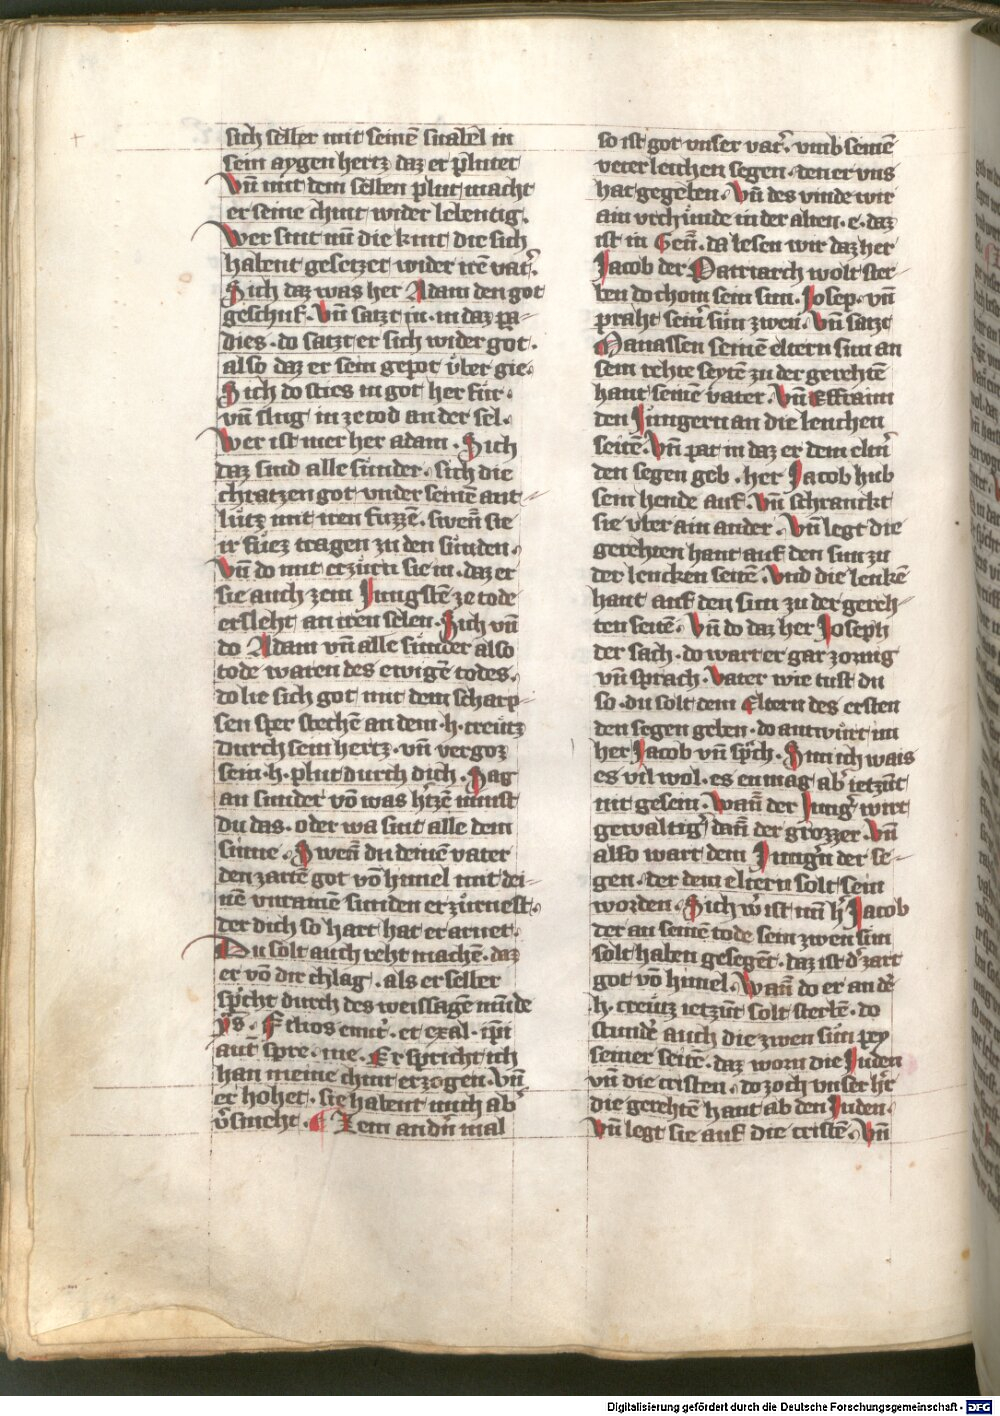 sich selber mit seinē snabel in
sein aygen hertz daz er plutet
Vn̄ mit dem selben plut macht
er seine chint wider lebentig.
Wer sint nu͂ die kint die sich
habent gesetzet wider irē vat᷑.
Sich daz was her Adam den got
geschuf. Vn̄ satzt in. in daz pa-
dies. do satzt er sich wider got.
also daz er sein gepot über gie.
Sich do sties in got her für.
vn̄ slug in ze tod an der sel.
Wer ist mer her adam. Sich
daz sind alle sünder. sich die
chratzen got vnder seinē ant-
lütz mit iren fuzzē. swen̄ sie
ir füez tragen zu den sünden.
Vn̄ do mit erzürn sie in. daz er
sie auch zem Jungstē ze tode
ersleht an iren selen. Sich vn̄
do Adam vn̄ alle sünder also
tode waren des ewigē todes.
do lie sich got mit dem scharp-
fen sper stechē an dem .h. creütz
durch sein hertz. vn̄ vergoz
sein .h. plut durch dich. Sag
an sunder vō was h᷑tzē muist
du das. oder wa sint alle dein
sinne. Swen̄ du deinē vater
den zartē got vō himel mit dei-
nē vnrainē sunden erzürnest.
der dich so hart hat er arnet.
Du solt auch reht machē. daz
er vō dir chlag. als er selber
sp᷑icht durch des weissagē mūde
ys̄. Filios enut᷑. et exal. ip̄i
aut̄ spre. me. Er spricht ich
han meine chint erzogen. Vn̄
er hohet. sie habent mich ab᷑
v᷑smeht. ¶ Zem andn̄ mal
so ist got vnser vat᷑. vmb seinē
veterleichen segen. den er vns
hat gegeben. Vn̄ des vinde wir
ain vrchünde in der alten .e. daz
ist in Gen̄. da lesen wir daz her
Jacob der Patriarch wolt ster-
ben do chom sein sun. Josep. vn̄
praht sein᷑ sün zwen. Vn̄ satzt
Manassen seinē eltern sun an
sein rehte seytē zu der gerehtē
hant seinē vater. Vn̄ Effraim
den Jüngern an die lenchen
seitē. Vn̄ pat in daz er dem eltn᷑
den segen geb. her Jacob hub
sein hende auf. Vn̄ schranckt
sie vber ain ander. Vn̄ legt die
gerehten hant auf den sun zu
der lencken seitē. Vnd die lenkē
hant auf den sun zu der gereh-
ten seitē. Vn̄ do daz her Joseph
der sach. do wart er gar zornig
vn̄ sprach. Vater wie tust du
so. du solt dem Eltern des ersten
den segen geben. do antwürt im
her Jacob vn̄ sp᷑ch. Sun ich wais
es vil wol. es en mag ab᷑ ietzūt
nit gesein. Wan̄ der Jung᷑ wirt
gewaltig᷑ dan̄ der grözzer. Vn̄
also wart dem Jungn̄ der se-
gen. der dem eltern solt sein
worden. Sich w᷑ ist nu͂ h᷑ Jacob
der an seinē tode sein zwen sün
solt haben gesegēt. daz ist d᷑ zart
got vō himel. Wan̄ do er an dē
.h. creütz ietzūt solt sterbē. do
stundē auch die zwen sün pey
seiner seite. daz worn die Juden
vn̄ die cristen. do zoch vnser h᷑r
die gerehtē hant ab den Juden.
Vn̄ legt sie auf die cristē. Vn̄
Digitalisierung gefördert durch die Deutsche Forschungsgemeinschaft - DFG